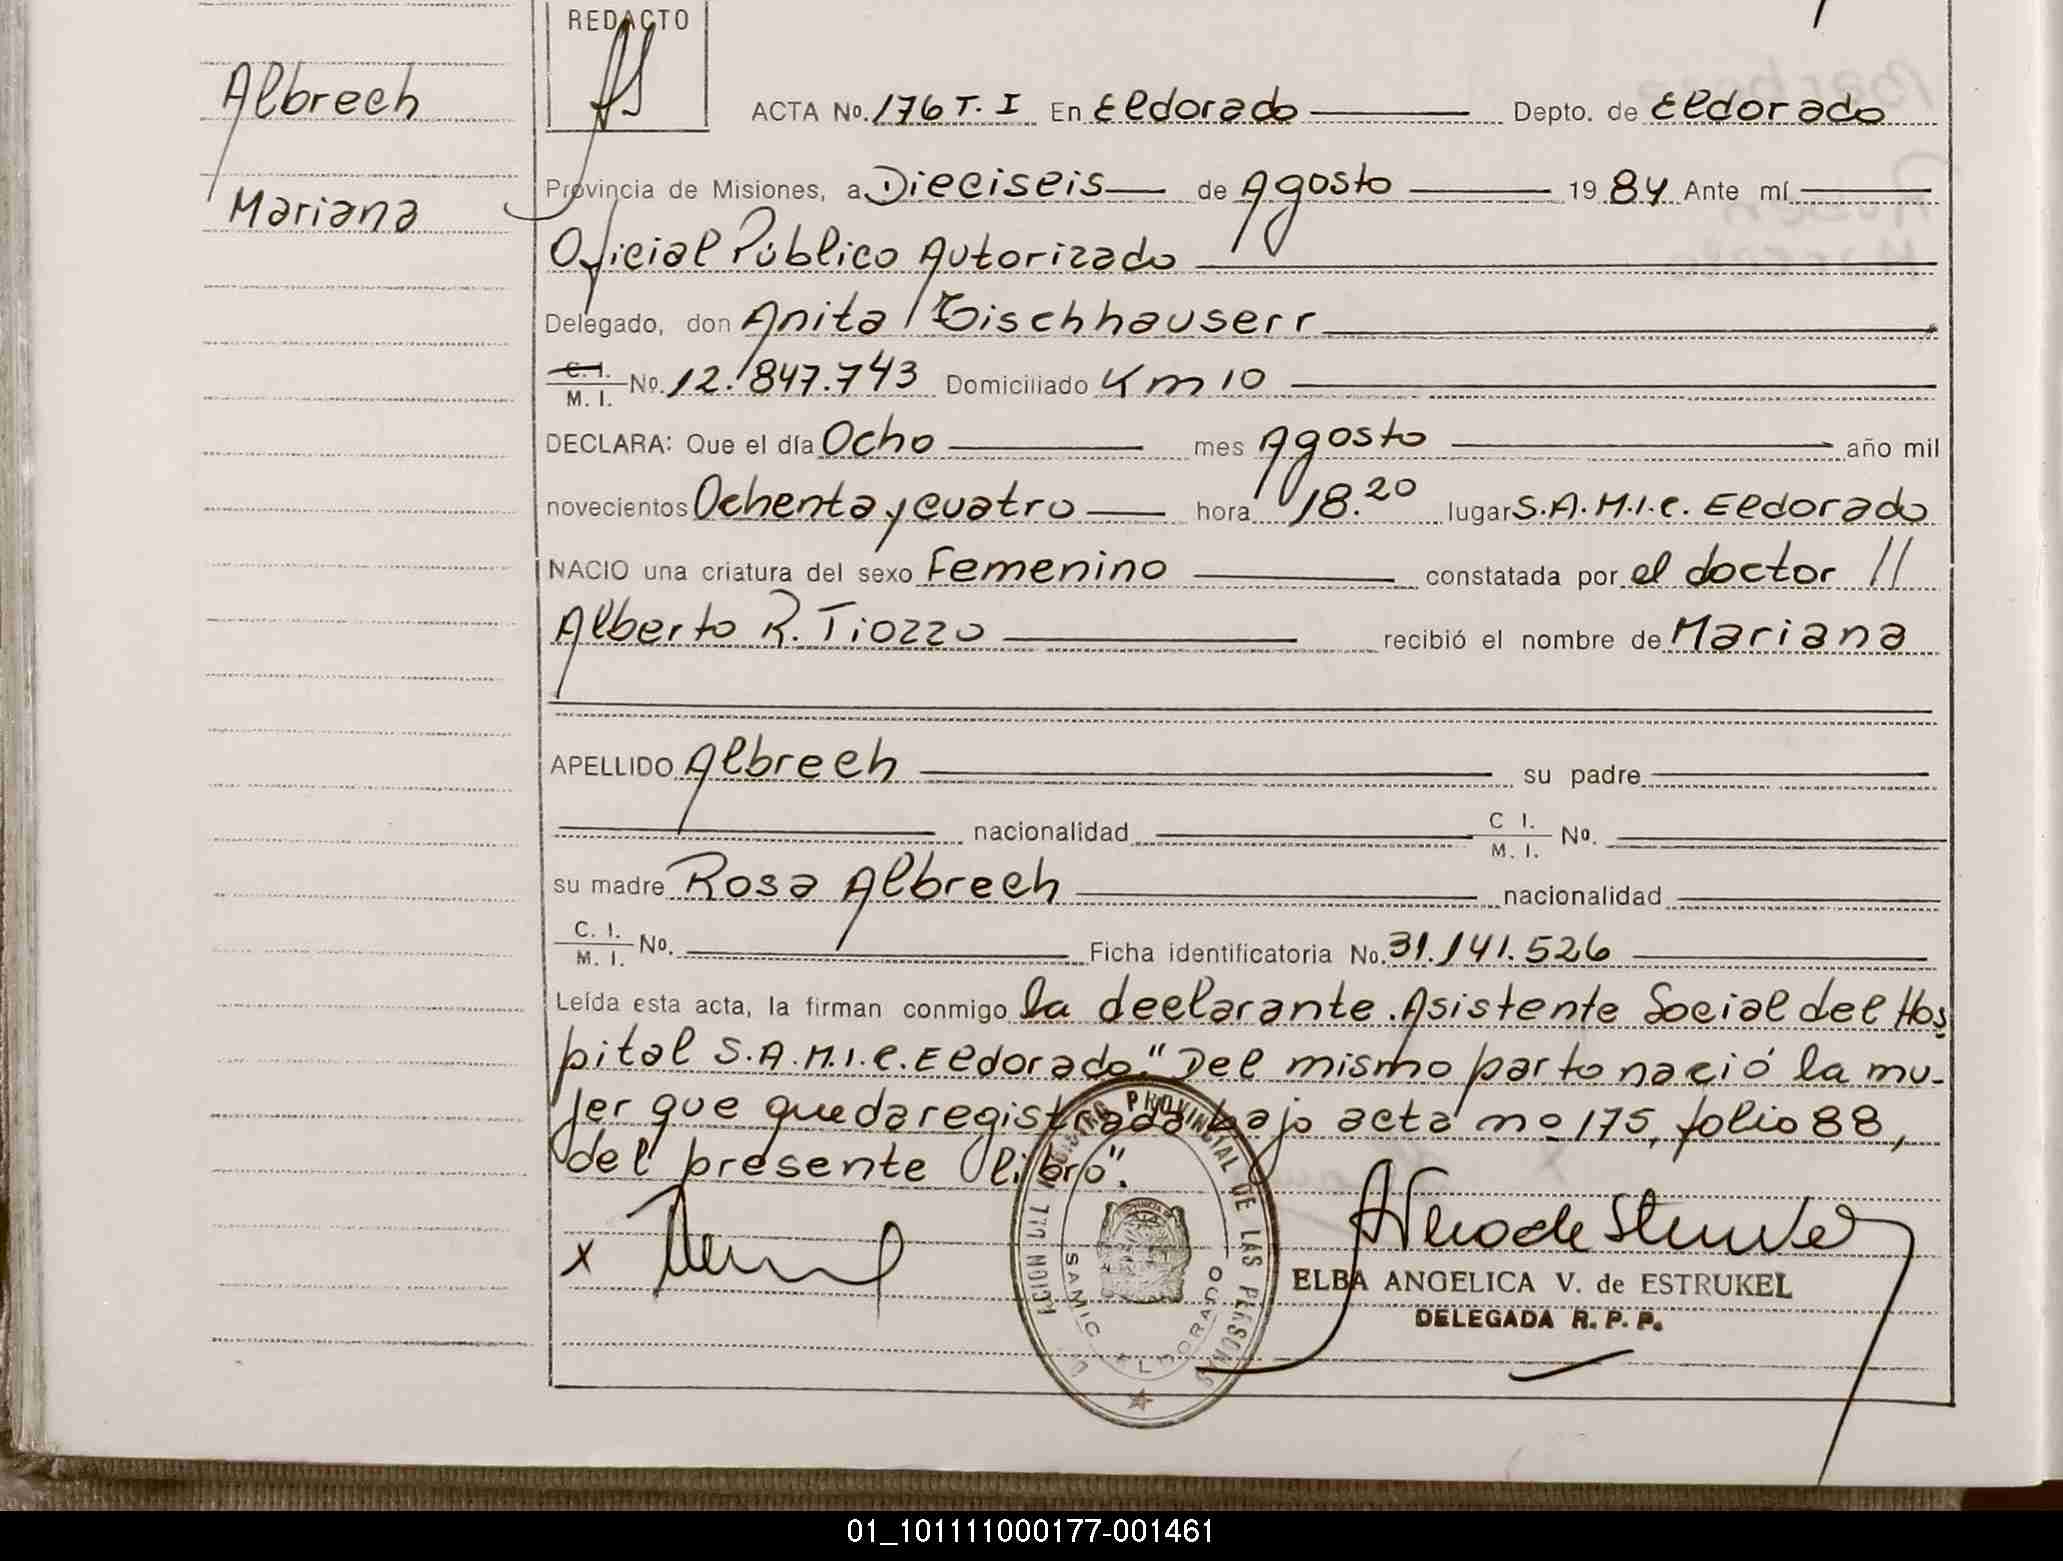 REDACTO
Albrech
Mariana
ACTA No. 176 T. I En Eldorado Depto. de Eldorado
Provincia de Misiones, a Dieciseis de Agosto 1984 Ante mí
Oficial Público Autorizado
Delegado, don Anita Tischhauserr
C. I. M. I. No. 12.847.743 Domiciliado Km 10
DECLARA: Que el día Ocho mes Agosto año mil
novecientos Ochenta y cuatro hora 18.20 lugar S.A.M.I.C. Eldorado
NACIO una criatura del sexo Femenino constatada por el doctor //
Alberto R. Tiozzo recibió el nombre de Mariana
APELLIDO Albrech su padre
nacionalidad C I. M. I. No.
su madre Rosa Albrech nacionalidad
C. I. M. I. No. Ficha identificatoria No. 31.141.526
Leída esta acta, la firman conmigo la declarante. Asistente Social del Hos
pital S.A.M.I.C. Eldorado. "Del mismo parto nació la mu-
jer que queda registrada bajo acta nº 175, folio 88,
del presente libro".
x
PROVINCIAL DE LAS PERSONAS
SAMIC ELDORADO
ELBA ANGELICA V. de ESTRUKEL
DELEGADA R. P. P.
01_101111000177-001461